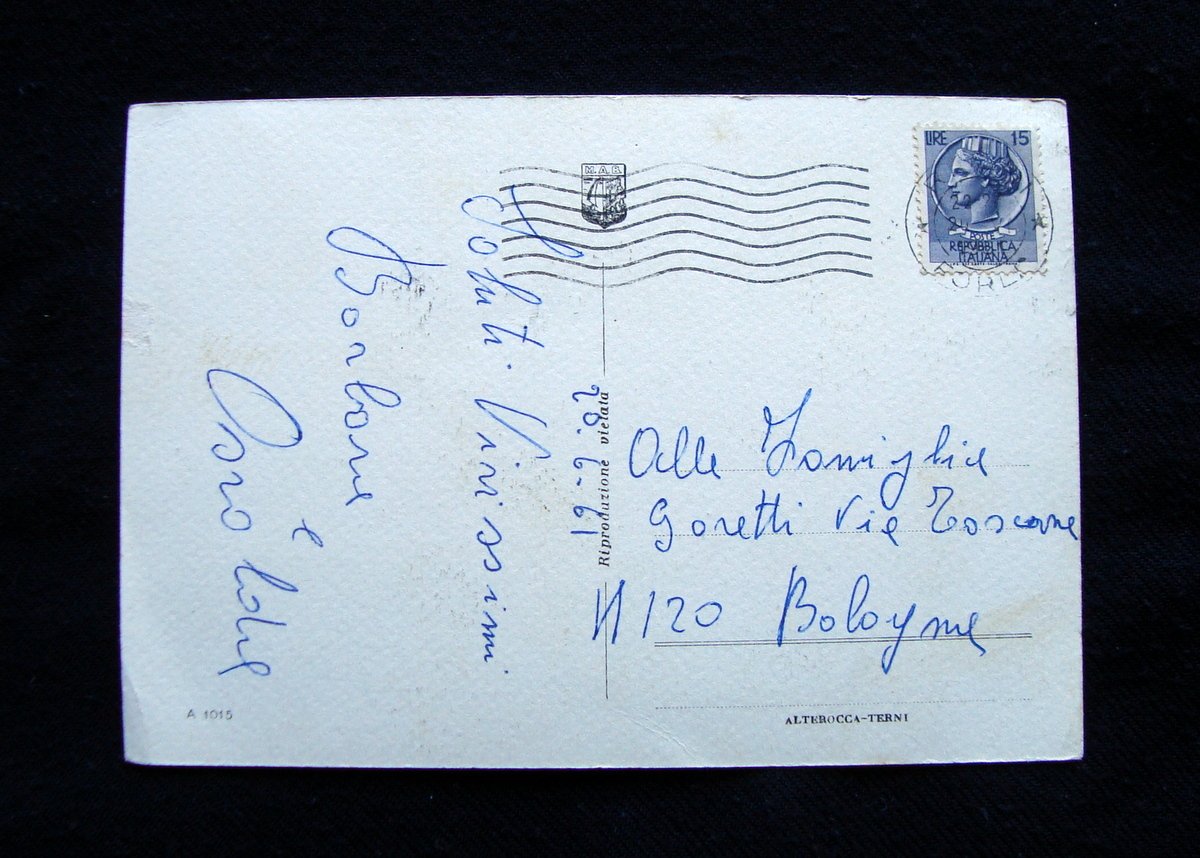 Saluti Vivissimi
Barbara
e
19-7-62
Riproduzione vietata
A 1015
M.A.B.
LIRE 15
POSTE
REPVBBLICA
ITALIANA
Alla Famiglia
Goretti Via Toscana
N 120 Bologna
ALTEROCCA-TERNI